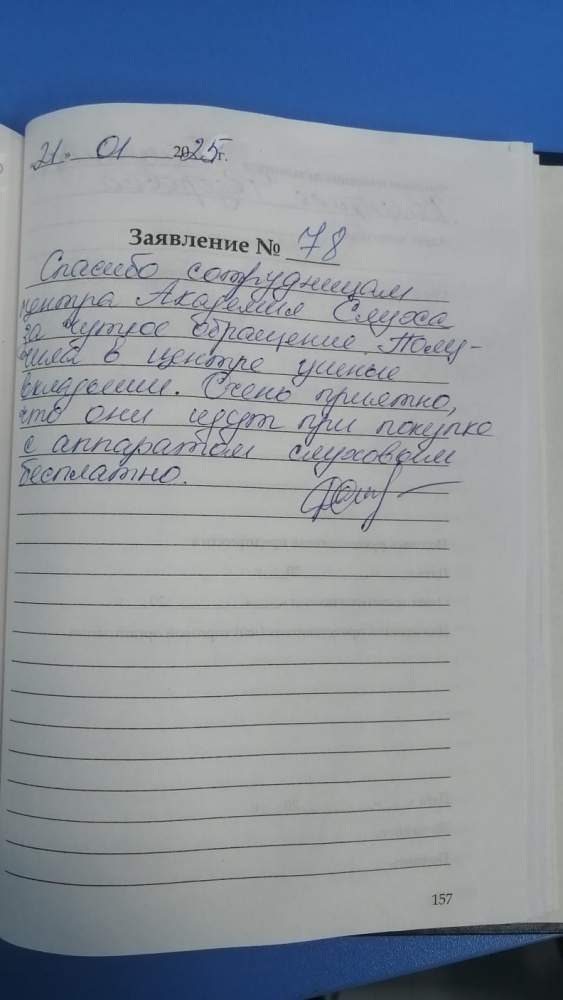 21. 01 2025г.
Заявление № 78
Спасибо сотрудницам
центра Академия Слуха
за чуткое обращение. Полу-
чила в центре ушные
вкладыши. Очень приятно,
что они идут при покупке
с аппаратом слуховым
бесплатно.
157